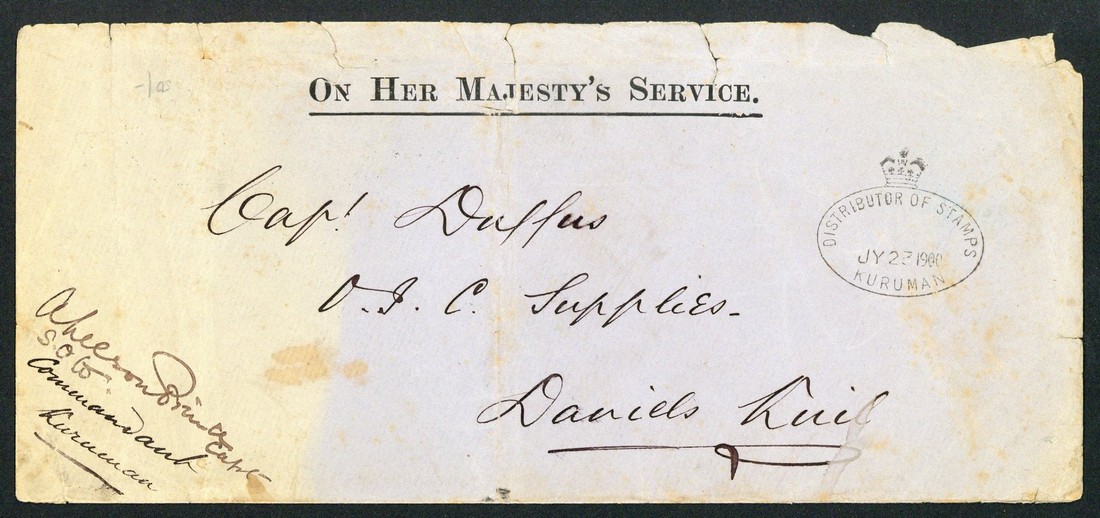 On Her Majesty's Service.
Capt Duffus
O. I. C. Supplies-
Daniels Kuil
DISTRIBUTOR OF STAMPS
JY 23 1900
KURUMAN
Capt
S.O. to
Commandant
Kuruman